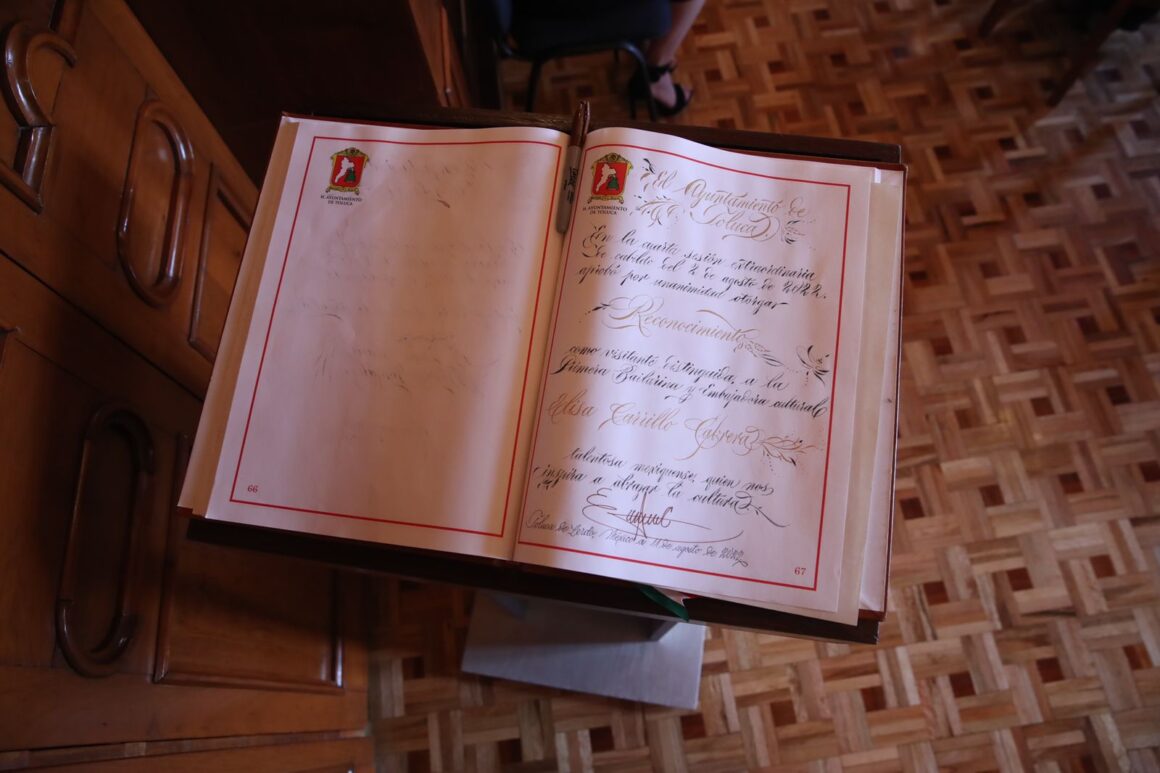 H. AYUNTAMIENTO
DE TOLUCA
66
H. AYUNTAMIENTO
DE TOLUCA
El Ayuntamiento de
Toluca
En la cuarta sesión extraordinaria
de cabildo del 2 de agosto de 2022.
aprobó por unanimidad otorgar
Reconocimiento
como visitante distinguida, a la
Primera Bailarina y Embajadora cultural
Elisa Carrillo Cabrera
talentosa mexiquense, quien nos
inspira a abrazar la cultura
Toluca de Lerdo, México a 11 de agosto de 2022
67